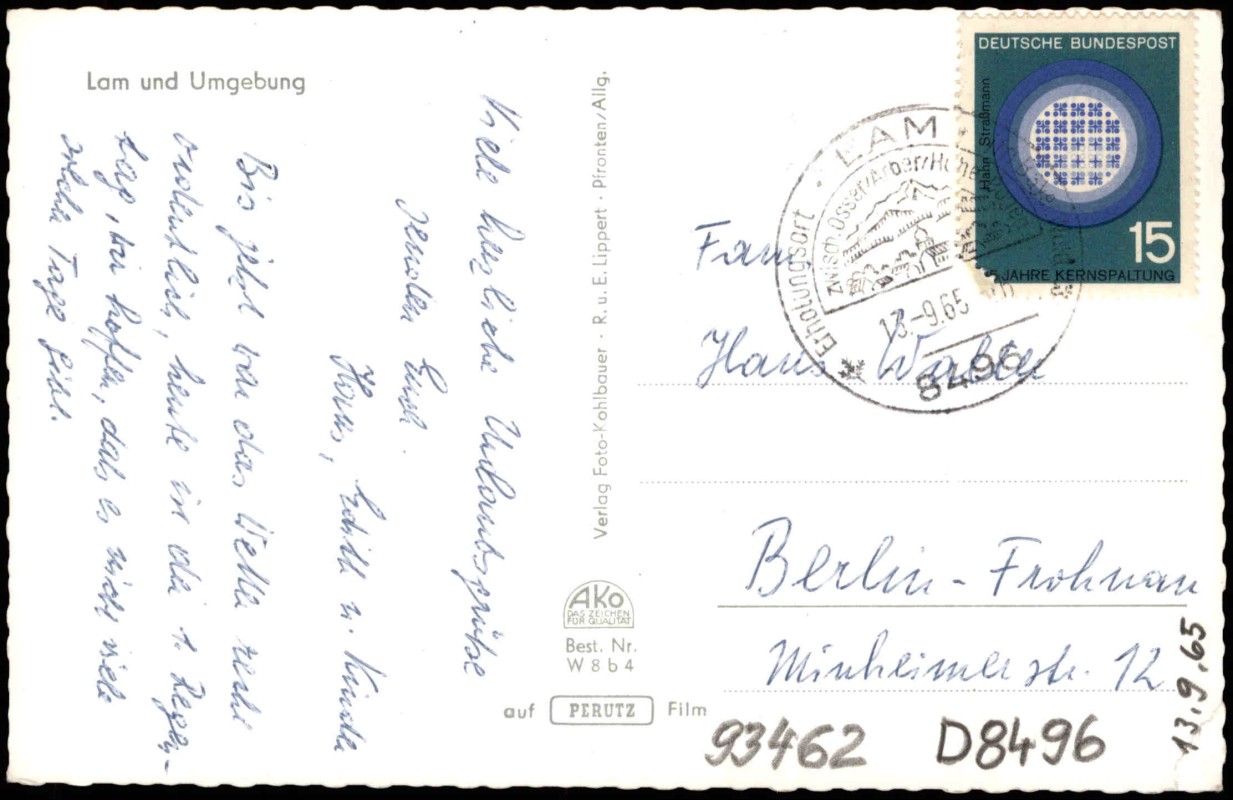 Lam und Umgebung
Viele herzliche Urlaubsgrüße
senden Euch
Horst, Edith u. Kinder
Bis jetzt war das Wetter recht
ordentlich, heute ist der 1. Regen-
tag, wir hoffen, daß es nicht viele
solche Tage gibt.
Verlag Foto-Kohlbauer · R. u. E. Lippert · Pfronten/Allg.
AKO
DAS ZEICHEN
FÜR QUALITÄT
Best. Nr.
W 8 b 4
auf PERUTZ Film
DEUTSCHE BUNDESPOST
Hahn · Straßmann
15
JAHRE KERNSPALTUNG
LAM
Erholungsort
zwisch. Osser/Arber/Hohe
13.-9.65
8496
Fam
Hans
Berlin-Frohnau
Minheimerstr. 12
13.9.65
93462 D8496